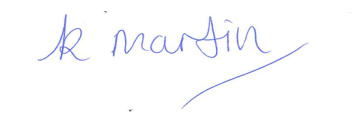 k martin